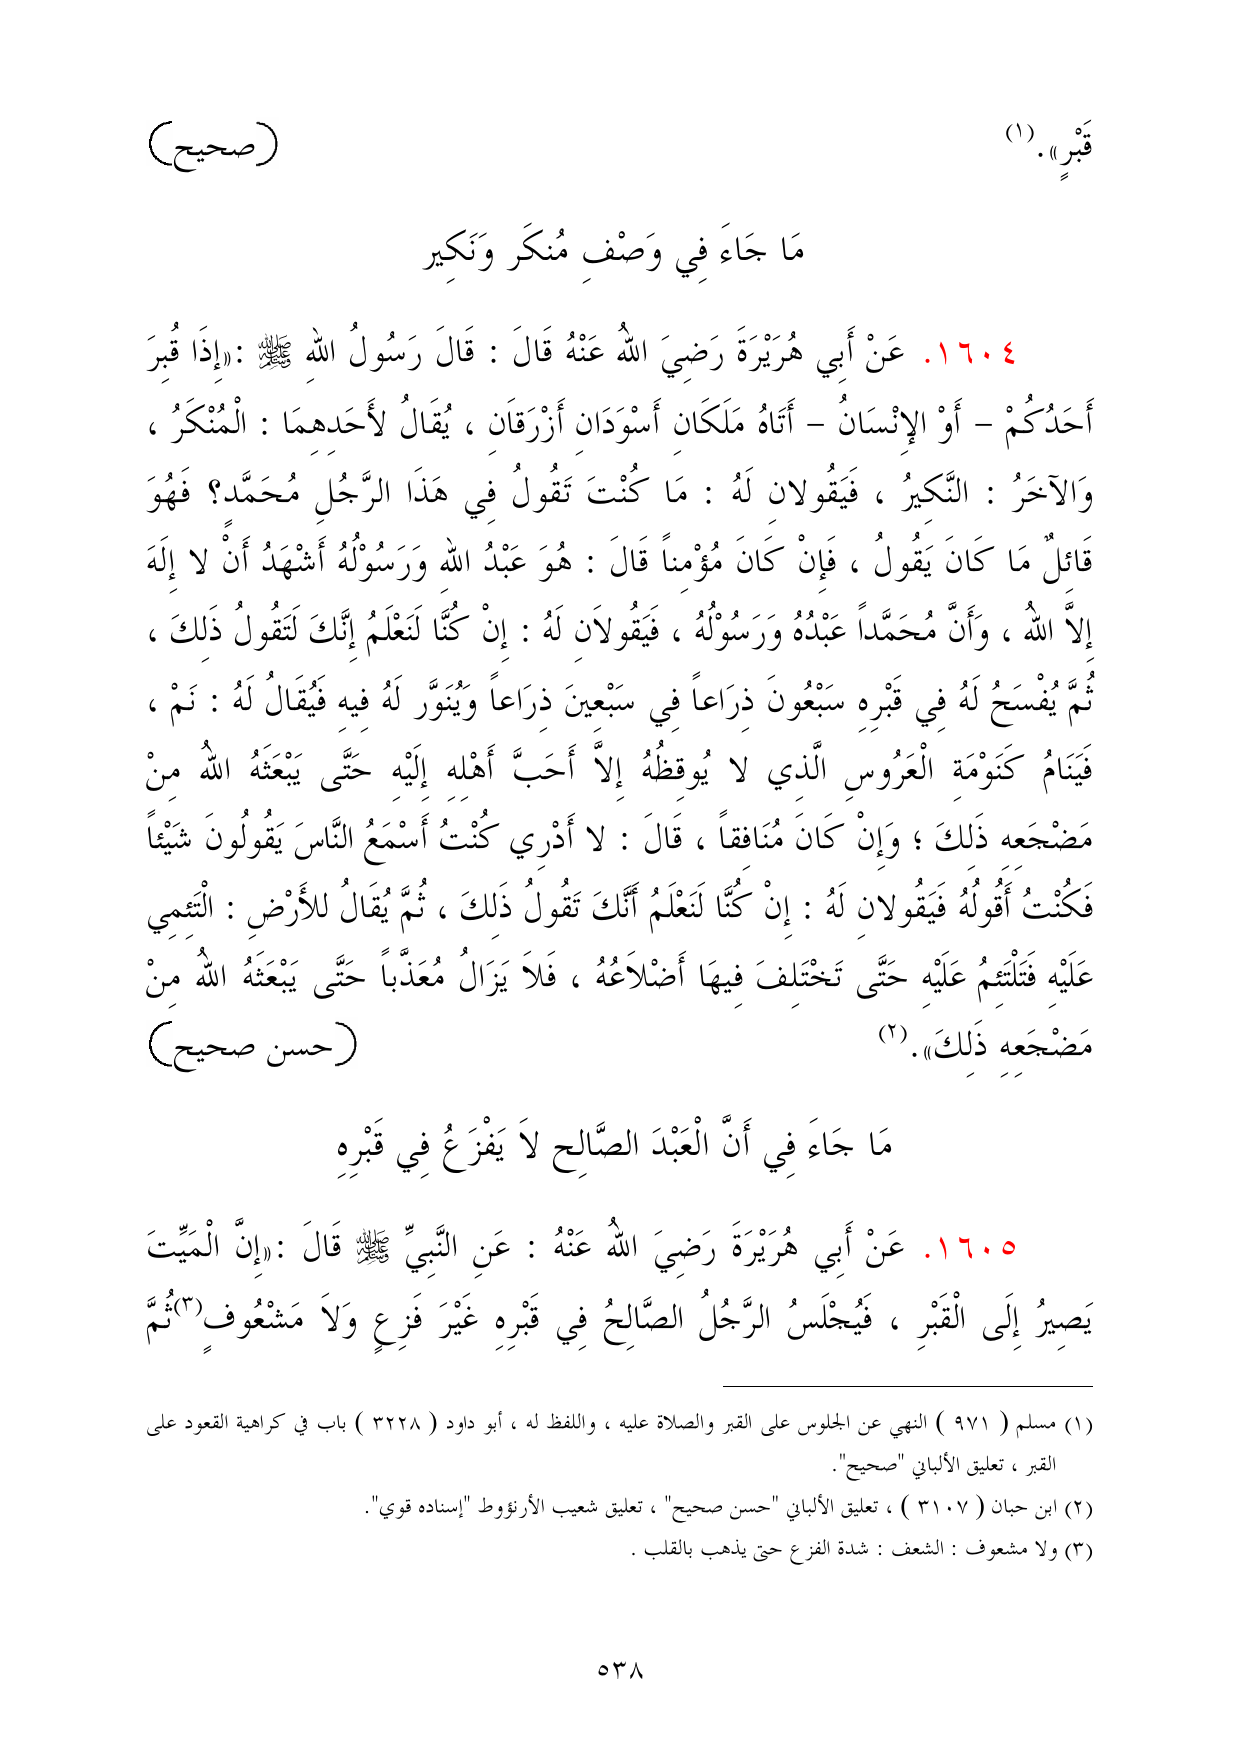 قَبْرٍ».(١) (صحيح)
مَا جَاءَ فِي وَصْفِ مُنكَر وَنَكِير
١٦٠٤. عَنْ أَبِي هُرَيْرَةَ رَضِيَ اللهُ عَنْهُ قَالَ : قَالَ رَسُولُ اللهِ ﷺ :«إِذَا قُبِرَ
أَحَدُكُمْ – أَوْ الإِنْسَانُ – أَتَاهُ مَلَكَانِ أَسْوَدَانِ أَزْرَقَانِ ، يُقَالُ لأَحَدِهِمَا : الْمُنْكَرُ ،
وَالآخَرُ : النَّكِيرُ ، فَيَقُولانِ لَهُ : مَا كُنْتَ تَقُولُ فِي هَذَا الرَّجُلِ مُحَمَّدٍ؟ فَهُوَ
قَائِلٌ مَا كَانَ يَقُولُ ، فَإِنْ كَانَ مُؤْمِناً قَالَ : هُوَ عَبْدُ اللهِ وَرَسُوْلُهُ أَشْهَدُ أَنْ لا إِلَهَ
إِلاَّ اللهُ ، وَأَنَّ مُحَمَّداً عَبْدُهُ وَرَسُوْلُهُ ، فَيَقُولاَنِ لَهُ : إِنْ كُنَّا لَنَعْلَمُ إِنَّكَ لَتَقُولُ ذَلِكَ ،
ثُمَّ يُفْسَحُ لَهُ فِي قَبْرِهِ سَبْعُونَ ذِرَاعاً فِي سَبْعِينَ ذِرَاعاً وَيُنَوَّر لَهُ فِيهِ فَيُقَالُ لَهُ : نَمْ ،
فَيَنَامُ كَنَوْمَةِ الْعَرُوسِ الَّذِي لا يُوقِظُهُ إِلاَّ أَحَبَّ أَهْلِهِ إِلَيْهِ حَتَّى يَبْعَثَهُ اللهُ مِنْ
مَضْجَعِهِ ذَلِكَ ؛ وَإِنْ كَانَ مُنَافِقاً ، قَالَ : لا أَدْرِي كُنْتُ أَسْمَعُ النَّاسَ يَقُولُونَ شَيْئاً
فَكُنْتُ أَقُولُهُ فَيَقُولانِ لَهُ : إِنْ كُنَّا لَنَعْلَمُ أَنَّكَ تَقُولُ ذَلِكَ ، ثُمَّ يُقَالُ للأَرْضِ : الْتَئِمِي
عَلَيْهِ فَتَلْتَئِمُ عَلَيْهِ حَتَّى تَخْتَلِفَ فِيهَا أَضْلاَعُهُ ، فَلاَ يَزَالُ مُعَذَّباً حَتَّى يَبْعَثَهُ اللهُ مِنْ
مَضْجَعِهِ ذَلِكَ».(٢) (حسن صحيح)
مَا جَاءَ فِي أَنَّ الْعَبْدَ الصَّالِح لاَ يَفْزَعُ فِي قَبْرِهِ
١٦٠٥. عَنْ أَبِي هُرَيْرَةَ رَضِيَ اللهُ عَنْهُ : عَنِ النَّبِيِّ ﷺ قَالَ :«إِنَّ الْمَيِّتَ
يَصِيرُ إِلَى الْقَبْرِ ، فَيُجْلَسُ الرَّجُلُ الصَّالِحُ فِي قَبْرِهِ غَيْرَ فَزِعٍ وَلاَ مَشْعُوفٍ(٣) ثُمَّ
(١) مسلم ( ٩٧١ ) النهي عن الجلوس على القبر والصلاة عليه ، واللفظ له ، أبو داود ( ٣٢٢٨ ) باب في كراهية القعود على
القبر ، تعليق الألباني "صحيح".
(٢) ابن حبان ( ٣١٠٧ ) ، تعليق الألباني "حسن صحيح" ، تعليق شعيب الأرنؤوط "إسناده قوي".
(٣) ولا مشعوف : الشعف : شدة الفزع حتى يذهب بالقلب .
٥٣٨